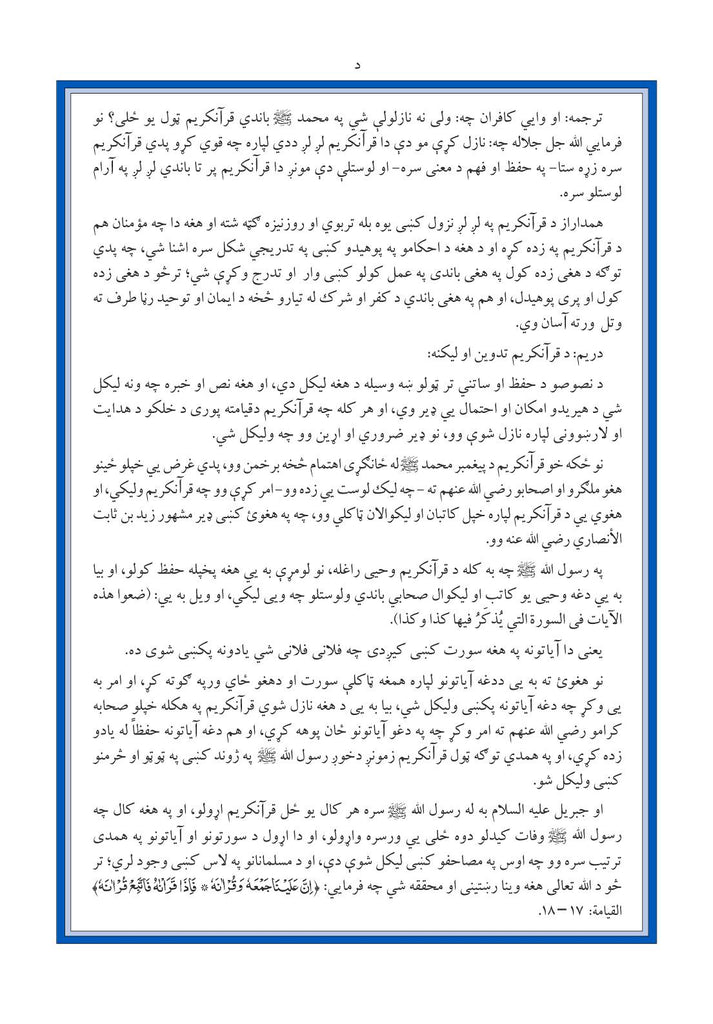 د
ترجمه: او وايي كافران چه: ولى نه نازلولې شي په محمد ﷺ باندي قرآنكريم ټول يو ځلى؟ نو
فرمايي الله جل جلاله چه: نازل كړې مو دې دا قرآنكريم لږ لږ ددې لپاره چه قوي كړو پدې قرآنكريم
سره زړه ستا- په حفظ او فهم د معنى سره- او لوستلي دي مونږ دا قرآنكريم پر تا باندي لږ لږ په آرام
لوستلو سره.
همداراز د قرآنكريم په لږ لږ نزول كښى يوه بله تربوي او روزنيزه ګټه شته او هغه دا چه مؤمنان هم
د قرآنكريم په زده كړه او د هغه د احكامو په پوهيدو كښى په تدريجي شكل سره اشنا شي، چه پدې
توګه د هغى زده كول په هغى باندى په عمل كولو كښى وار او تدرج وكړې شي؛ ترڅو د هغى زده
كول او پرى پوهيدل، او هم په هغى باندي د كفر او شرك له تيارو څخه د ايمان او توحيد رڼا طرف ته
وتل ورته آسان وي.
دريم: د قرآنكريم تدوين او ليكنه:
د نصوصو د حفظ او ساتني تر ټولو ښه وسيله د هغه ليكل دي، او هغه نص او خبره چه ونه ليكل
شي د هيريدو امكان او احتمال يي ډير وي، او هر كله چه قرآنكريم دقيامته پورى د خلكو د هدايت
او لارښوونى لپاره نازل شوې وو، نو ډير ضروري او اړين وو چه وليكل شي.
نو ځكه خو قرآنكريم د پيغمبر محمد ﷺ له ځانګړى اهتمام څخه برخمن وو، پدې غرض يي خپلو ځينو
هغو ملګرو او اصحابو رضي الله عنهم ته -چه ليك لوست يي زده وو- امر كړې وو چه قرآنكريم وليكي، او
هغوي يي د قرآنكريم لپاره خپل كاتبان او ليكوالان ټاكلي وو، چه په هغوئ كښى ډير مشهور زيد بن ثابت
الأنصاري رضي الله عنه وو.
په رسول الله ﷺ چه به كله د قرآنكريم وحيى راغله، نو لومړې به يي هغه پخپله حفظ كولو، او بيا
به يي دغه وحيى يو كاتب او ليكوال صحابي باندي ولوستلو چه ويى ليكي، او ويل به يي: (ضعوا هذه
الآيات فى السورة التي يُذكَرُ فيها كذا وكذا).
يعنى دا آياتونه په هغه سورت كښى كيږدى چه فلانى فلانى شي يادونه پكښى شوى ده.
نو هغوئ ته به يى ددغه آياتونو لپاره همغه ټاكلې سورت او دهغو ځاي ورپه ګوته كړ، او امر به
يى وكړ چه دغه آياتونه پكښى وليكل شي، بيا به يى د هغه نازل شوي قرآنكريم په هكله خپلو صحابه
كرامو رضي الله عنهم ته امر وكړ چه په دغو آياتونو ځان پوهه كړي، او هم دغه آياتونه حفظاً له يادو
زده كړي، او په همدې توګه ټول قرآنكريم زمونږ دخوږ رسول الله ﷺ په ژوند كښى په ټوټو او څرمنو
كښى وليكل شو.
او جبريل عليه السلام به له رسول الله ﷺ سره هر كال يو ځل قرآنكريم اړولو، او په هغه كال چه
رسول الله ﷺ وفات كيدلو دوه ځلى يي ورسره واړولو، او دا اړول د سورتونو او آياتونو په همدى
ترتيب سره وو چه اوس په مصاحفو كښى ليكل شوې دې، او د مسلمانانو په لاس كښى وجود لري؛ تر
څو د الله تعالى هغه وينا رښتينى او محققه شي چه فرمايي: ﴿إِنَّ عَلَيْنَا جَمْعَهُ وَقُرْآنَهُ * فَإِذَا قَرَأْنَاهُ فَاتَّبِعْ قُرْآنَهُ﴾
القيامة: ١٧-١٨.